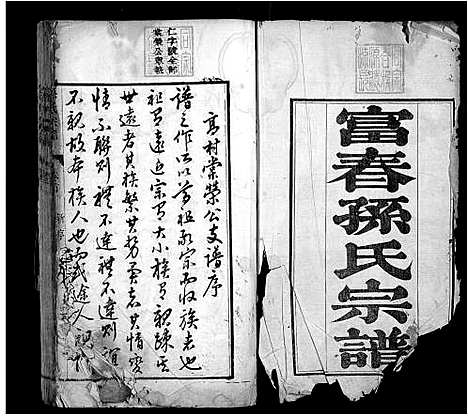 富春孫氏宗譜
仁字號全部
棠榮公衆執
高村棠榮公支譜序
譜之作所以尊祖敬宗而收族者也
祖有遠近宗有大小族有親疎其
世遠者其族繁其勢夷者其情變
情不聯則禮不達禮不達則誼
不親故本族人也而或途人視